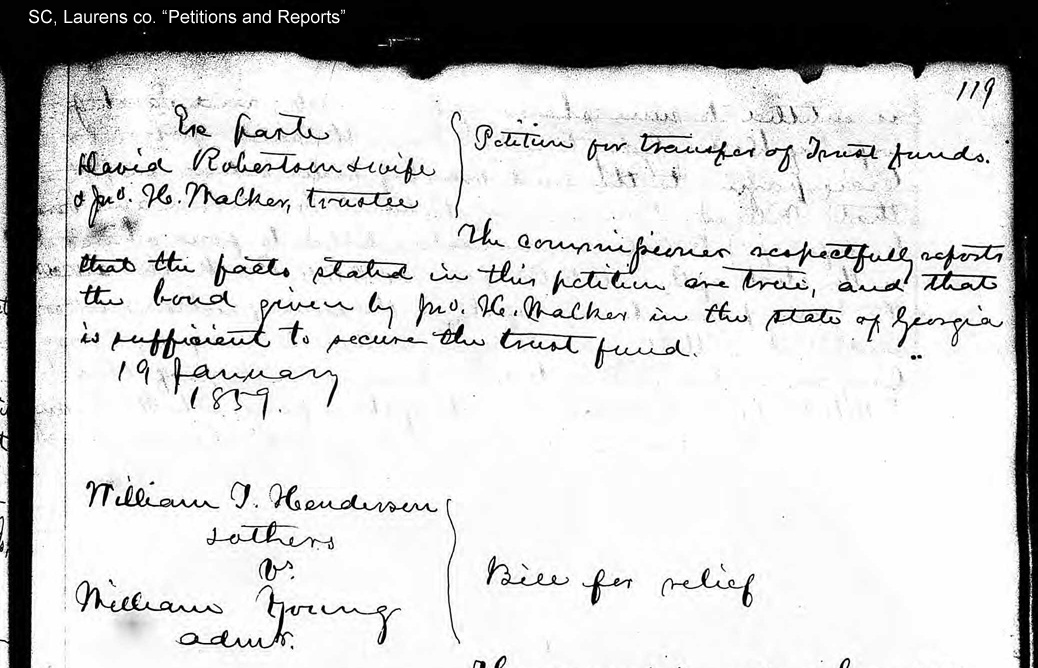 SC, Laurens co. “Petitions and Reports”
119
Exe parte
David Robertson & wife
& Jno. H. Walker, trustee
Petition for transfer of Trust funds.
The commissioner respectfully reports
that the facts stated in this petition are true, and that
the bond given by Jno. H. Walker in the state of Georgia
is sufficient to secure the trust fund.
19 January
1859.
William T. Henderson
& others
vs.
William Young
admr.
Bill for relief
The